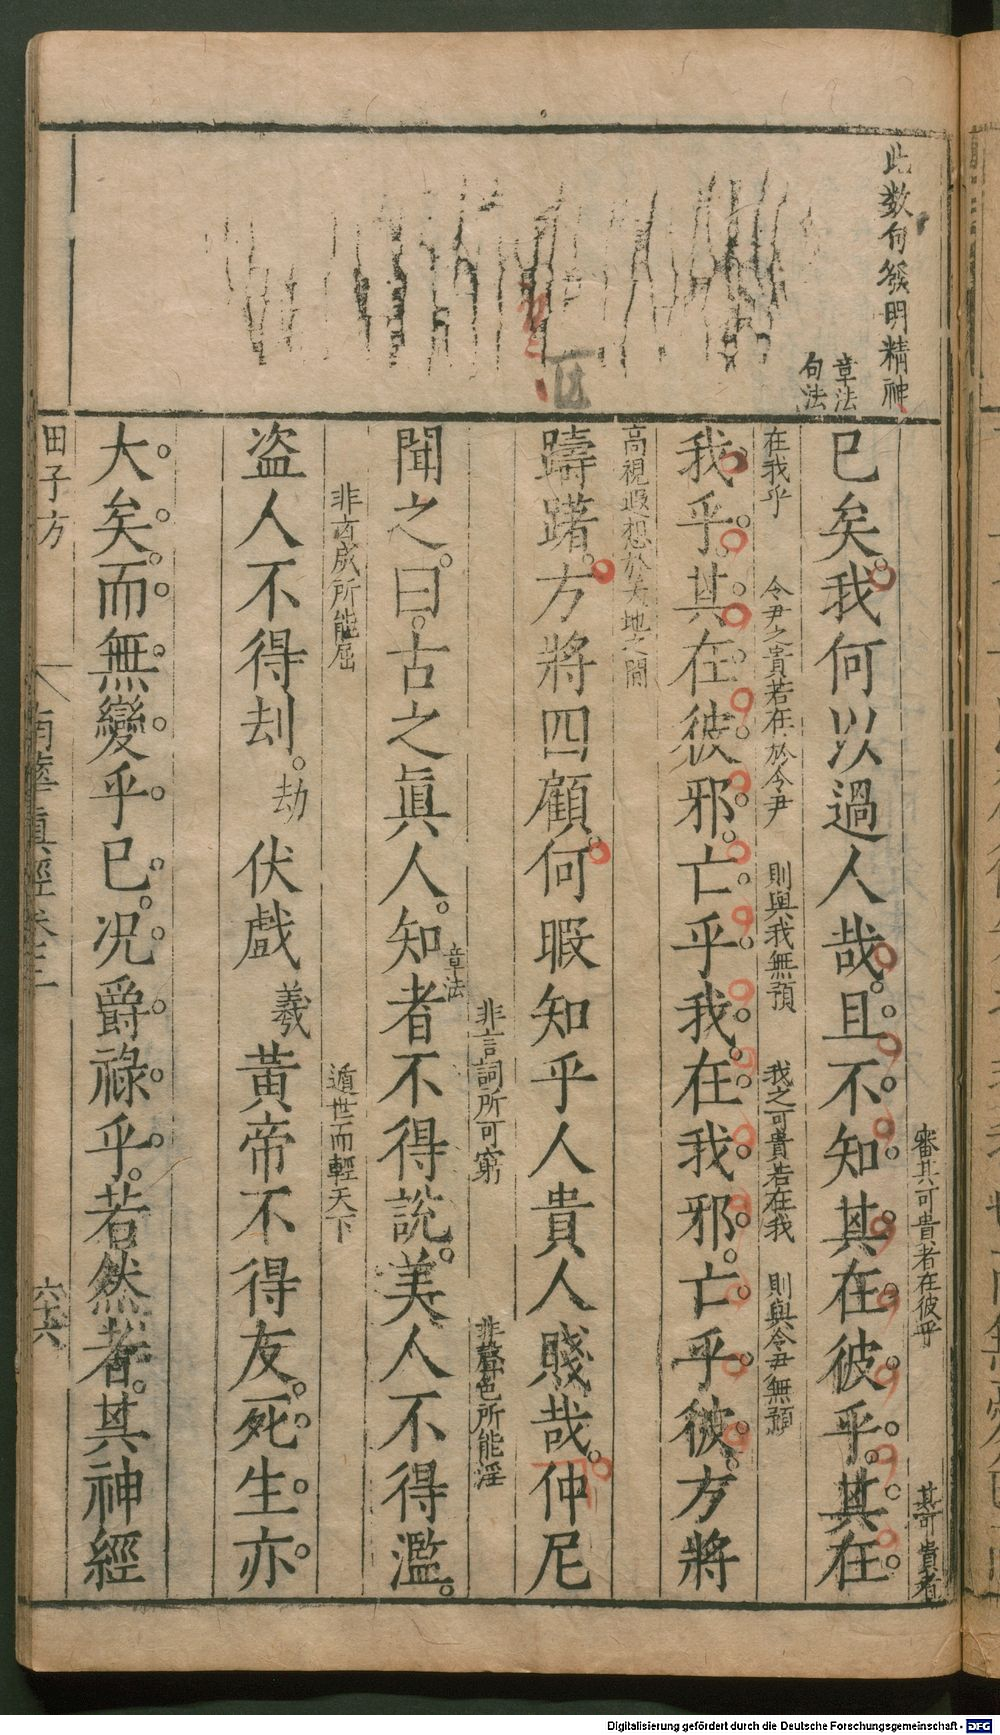 此数句發明精神
章法
句法
審其可貴者在彼乎
其可貴者
已矣。我何以過人哉。且不知其在彼乎。其在
在我乎
令尹之貴若在於令尹
則與我無預
我之可貴若在我
則與令尹無預
我乎。其在彼邪。亡乎我。在我邪。亡乎彼。方將
高視遐想於天地之間
躊躇。方將四顧。何暇知乎人貴人賤哉。仲尼
章法
非言詞所可窮
非聲色所能淫
聞之。曰。古之眞人。知者不得說。美人不得濫。
非
所能屈
遁世而輕天下
盗人不得刦。劫伏戲羲黃帝不得友。死生亦
大矣。而無變乎已。况爵祿乎。若然者。其神經
田子方
南華眞經卷
六
Digitalisierung gefördert durch die Deutsche Forschungsgemeinschaft - DFG